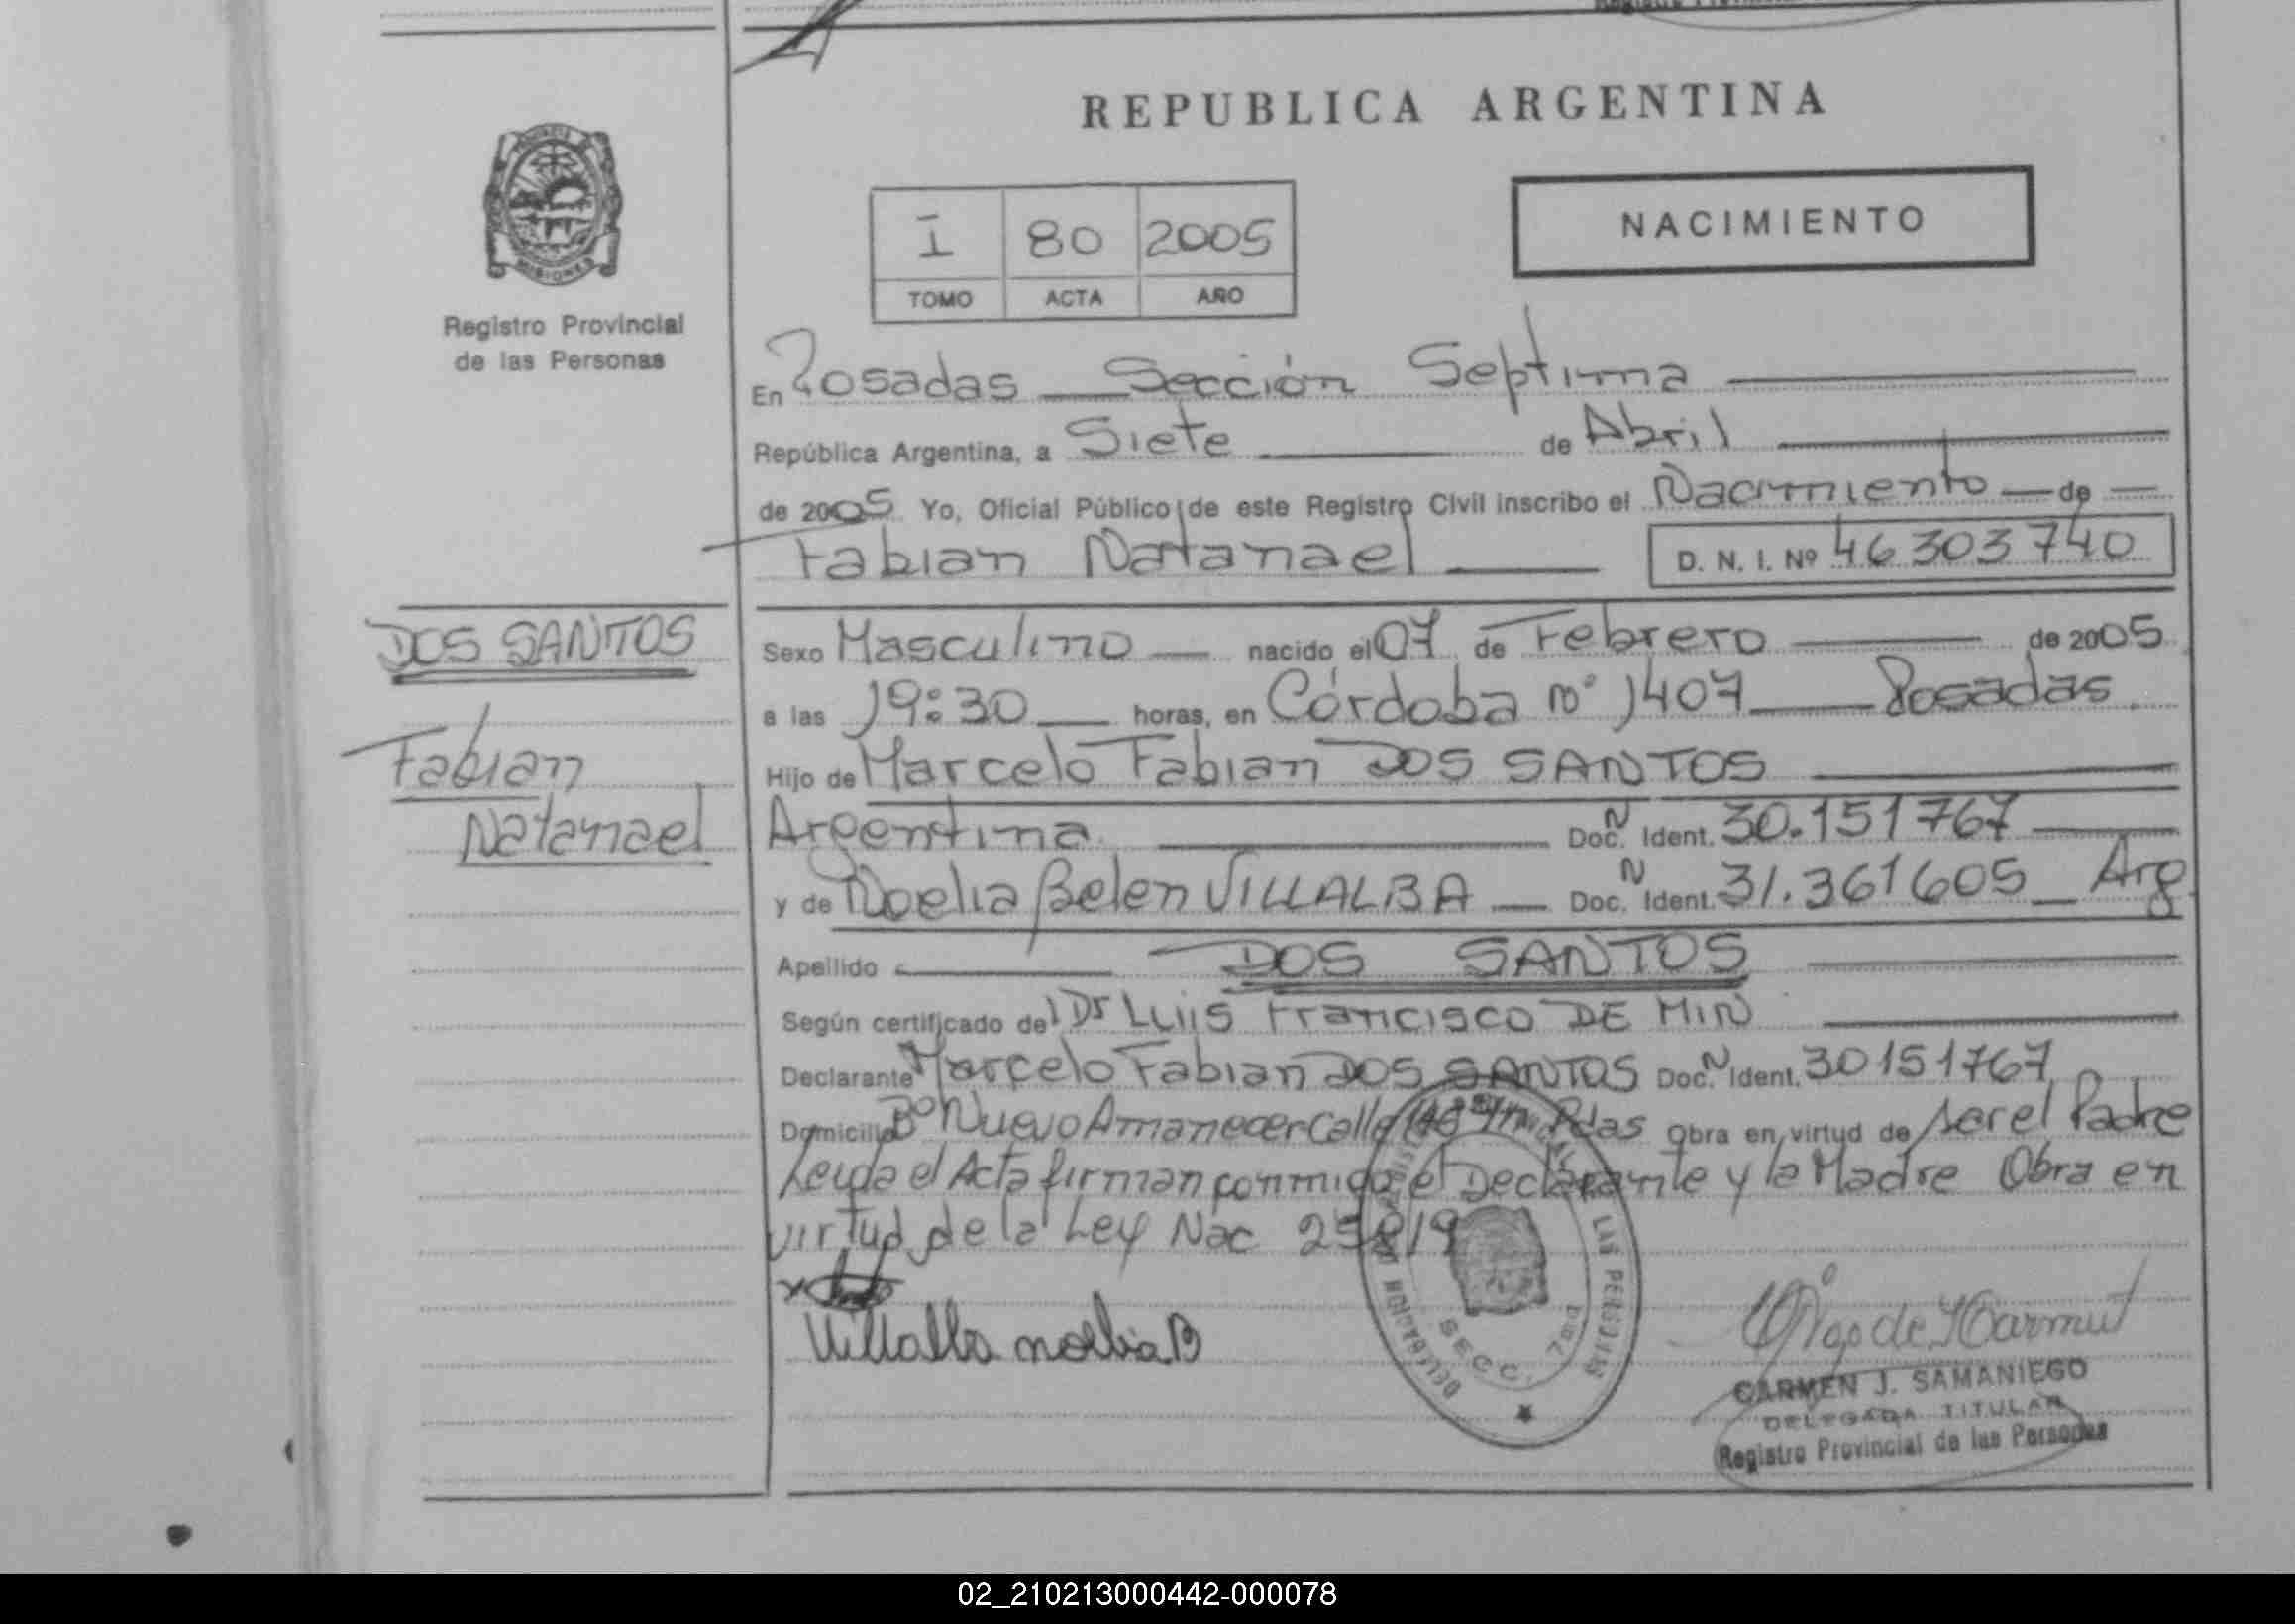 REPUBLICA ARGENTINA
PROVINCIA
MISIONES
Registro Provincial
de las Personas
I 80 2005
TOMO ACTA AÑO
NACIMIENTO
En Posadas Sección Septima
República Argentina, a Siete de Abril
de 2005 Yo, Oficial Público de este Registro Civil inscribo el Nacimiento de
Fabian Natanael
D. N. I. Nº 46303740
DOS SANTOS
Fabian
Natanael
Sexo Masculino nacido el 07 de Febrero de 2005
a las 19:30 horas, en Córdoba nº 1407 Posadas.
Hijo de Marcelo Fabian DOS SANTOS
Argentina Doc. N Ident. 30.151767
y de Noelia Belen VILLALBA Doc. N Ident. 31.361605 Arg.
Apellido DOS SANTOS
Según certificado del Dr LUIS FRANCISCO DE MIN
Declarante Marcelo Fabian DOS SANTOS Doc. N Ident. 30151767
Domicilio Bº Nuevo Amanecer Calle Pdas Obra en virtud de ser el Padre
Leida el Acta firman conmigo el Declarante y la Madre Obra en
virtud de la Ley Nac 25819
Villalba noelia B
DELEGACION LAS PERSONAS
SECC. 7ma
CARMEN J. SAMANIEGO
DELEGADA TITULAR
Registro Provincial de las Personas
02_210213000442-000078